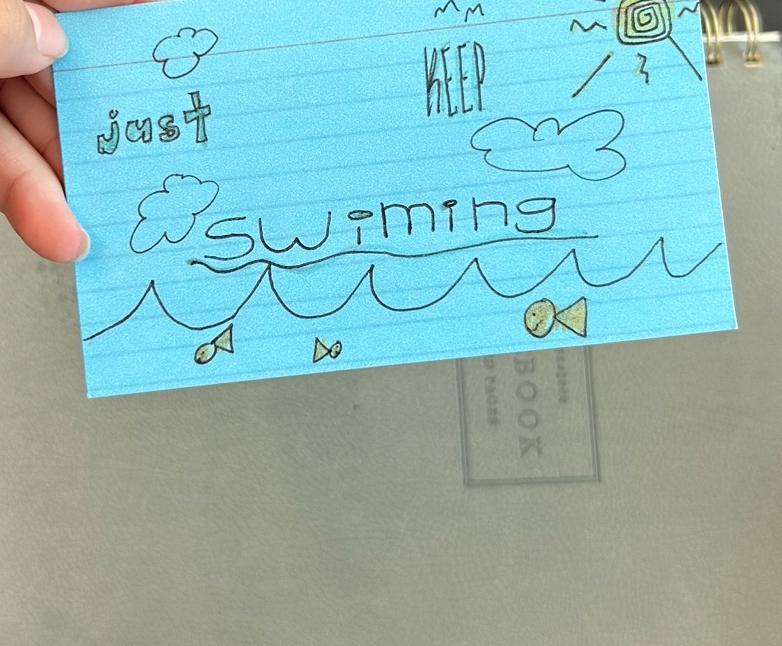 just KEEP
swiming
BOOK